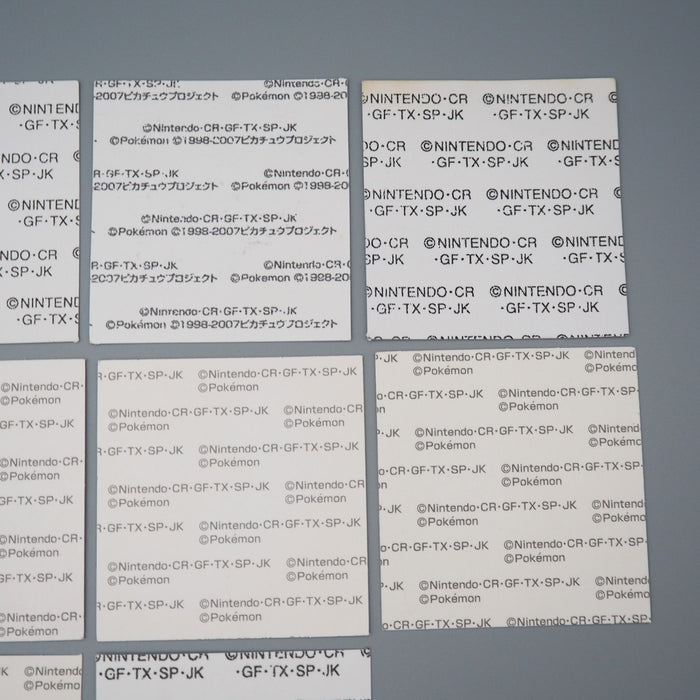 ©NINTEND
·GF·TX·S
NDO·CR ©
X·SP·JK
©NINTEND
·GF·TX·S
NDO·CR ©
X·SP·JK
©NINTEND
·GF·TX·S
R·GF·TX·SP·JK ©Nintendo·CR·(
2007ピカチュウプロジェクト ©Pokémon ©1998-20
©Nintendo·CR·GF·TX·SP·JK
©Pokémon ©1998-2007ピカチュウプロジェクト
R·GF·TX·SP·JK ©Nintendo·CR·(
2007ピカチュウプロジェクト ©Pokémon ©1998-20
©Nintendo·CR·GF·TX·SP·JK
©Pokémon ©1998-2007ピカチュウプロジェクト
R·GF·TX·SP·JK ©Nintendo·CR·(
2007ピカチュウプロジェクト ©Pokemon ©1998-20
©Nintendo·CR·GF·TX·SP·JK
©Pokémon ©1998-2007ピカチュウプロジェクト
NINTENDO·CR ©NINTENDO·CR
·GF·TX·SP·JK ·GF·TX·SP·JK
DO·CR ©NINTENDO·CR ©NINTEND
SP·JK ·GF·TX·SP·JK ·GF·TX·S
NINTENDO·CR ©NINTENDO·CR ©
·GF·TX·SP·JK ·GF·TX·SP·JK
DO·CR ©NINTENDO·CR ©NINTEND
SP·JK ·GF·TX·SP·JK ·GF·TX·S
NINTENDO·CR ©NINTENDO·CR ©
·GF·TX·SP·JK ·GF·TX·SP·JK
©Nintendo·CR·
©Pokémon
GF·TX·SP·JK
©Nintendo·CR·
©Pokémon
GF·TX·SP·JK
©Nintendo·CR·
©Pokémon
GF·TX·SP·JK
©Nintendo·CR·
©Pokémon
R·GF·TX·SP·JK ©Nintendo·CR·GF·TX·SP·JK
©Pokémon
©Nintendo·CR·GF·TX·SP·JK ©Nintendo·CR
©Pokémon ©Pokémon
R·GF·TX·SP·JK ©Nintendo·CR·GF·TX·SP·JK
©Pokémon
©Nintendo·CR·GF·TX·SP·JK ©Nintendo·CR
©Pokémon ©Pokémon
R·GF·TX·SP·JK ©Nintendo·CR·GF·TX·SP·JK
©Pokémon
©Nintendo·CR·GF·TX·SP·JK ©Nintendo·CR
©Pokémon ©Pokémon
R·GF·TX·SP·JK ©Nintendo·CR·GF·TX·SP·JK
©Pokémon
P·JK ©Nintendo·CR·GF·TX·SP·JK ©Nintend
©Pokémon ©Pokémo
o·CR·GF·TX·SP·JK ©Nintendo·CR·GF·TX·SP·
n ©Pokémon
P·JK ©Nintendo·CR·GF·TX·SP·JK ©Nintend
©Pokémon ©Pokémo
o·CR·GF·TX·SP·JK ©Nintendo·CR·GF·TX·SP·
n ©Pokémon
P·JK ©Nintendo·CR·GF·TX·SP·JK ©Nintend
©Pokémon ©Pokémo
o·CR·GF·TX·SP·JK ©Nintendo·CR·GF·TX·SP
n ©Pokémon
P·JK ©Nintendo·CR·GF·TX·SP·JK ©Nintend
©Pokémon ©Pokémo
o·CR·GF·TX·SP·JK ©Nintendo·CR·GF·TX·SP·
K ©Nintend
©Pokémo
NINTENDO·CR ©NINTENDO·CR ©
·GF·TX·SP·JK ·GF·TX·SP·JK